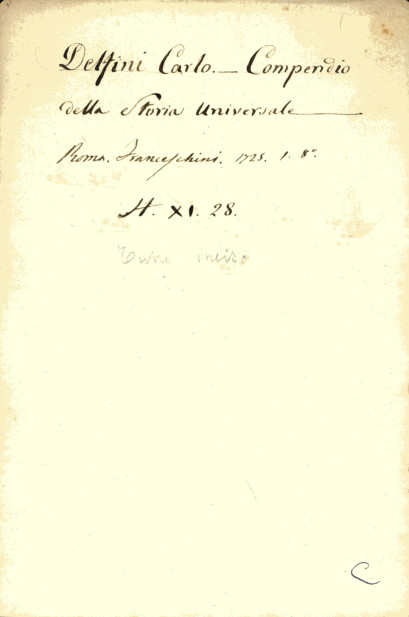 Delfini Carlo. — Compendio
della Storia Universale —
Roma. Franceschini. 1725. 1. 8°.
H. XI. 28.
Tutto inciso
C